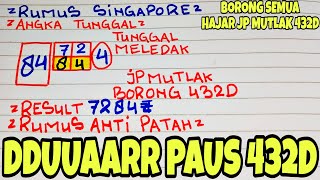 RUMUS SINGAPORE
BORONG SEMUA
HAJAR JP MUTLAK 432D
ANGKA TUNGGAL
TUNGGAL
MELEDAK
84
72
84
4
JP MUTLAK
BORONG 432D
RESULT 7284
RUMUS ANTI PATAH
DDUUAARR PAUS 432D